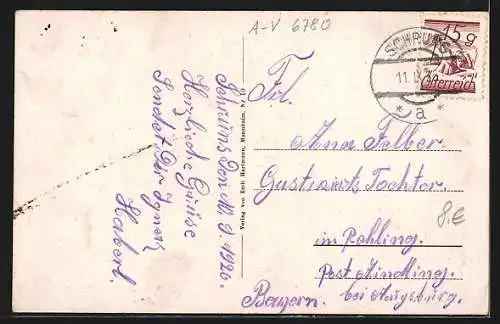 A-V 6780
SCHRUNS
11.IX.
* a *
15 g
Österreich
Schruns den 10. 9. 1926.
Herzliche Grüsse
Sendet Dir Ignaz
Haberl.
Verlag von Emil Hartmann, Mannheim. Nr 10
Frl.
Anna Felber
Gustwirts Tochter
im Rohling.
Post Aindling.
bei Augsburg.
Bayern.
8€